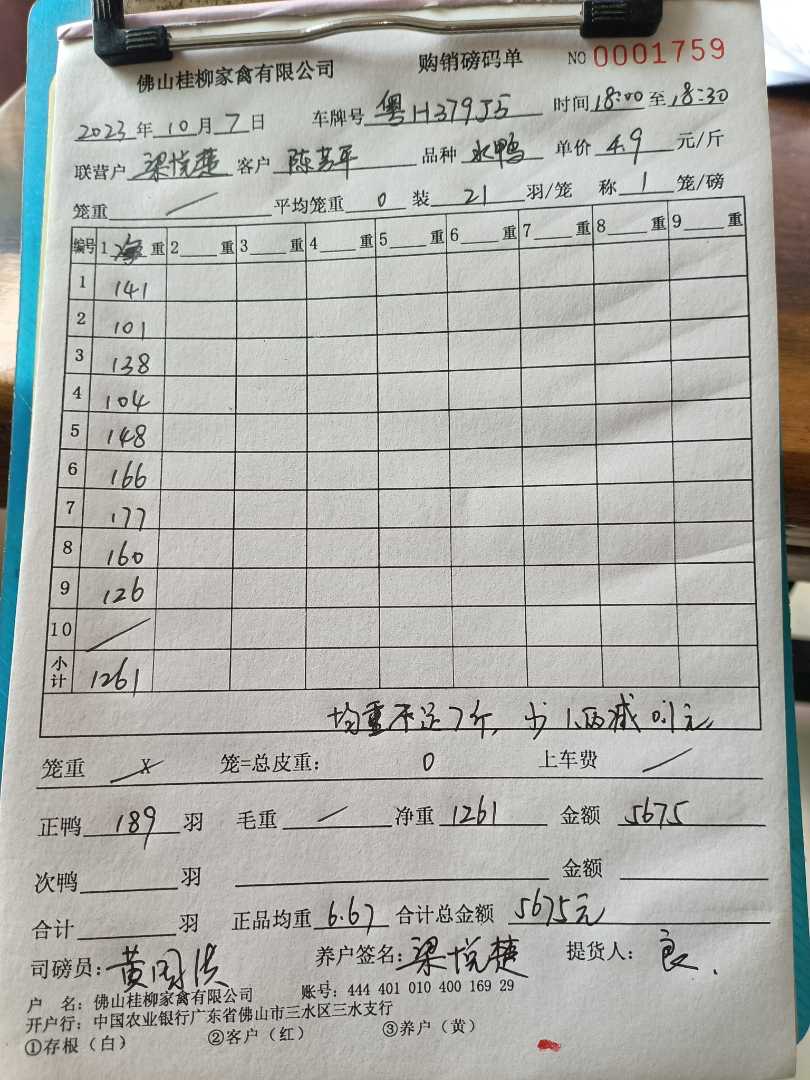 佛山桂柳家禽有限公司 购销磅码单 NO 0001759
2023年10月7日 车牌号 粤H379J5 时间 18:00 至 18:30
联营户 梁悦楚 客户 陈芳平 品种 水鸭 单价 4.9 元/斤
笼重 / 平均笼重 0 装 21 羽/笼 称 1 笼/磅
编号 1 净 重 2 重 3 重 4 重 5 重 6 重 7 重 8 重 9 重
1 141
2 101
3 138
4 104
5 148
6 166
7 177
8 160
9 126
10 /
小计 1261
均重不足7斤，少1两减0.1元
笼重 X 笼=总皮重： 0 上车费 /
正鸭 189 羽 毛重 / 净重 1261 金额 5675
次鸭 羽 金额
合计 羽 正品均重 6.67 合计总金额 5675元
司磅员：黄国洪 养户签名：梁悦楚 提货人：良.
户 名：佛山桂柳家禽有限公司 账号：444 401 010 400 169 29
开户行：中国农业银行广东省佛山市三水区三水支行
①存根（白） ②客户（红） ③养户（黄）